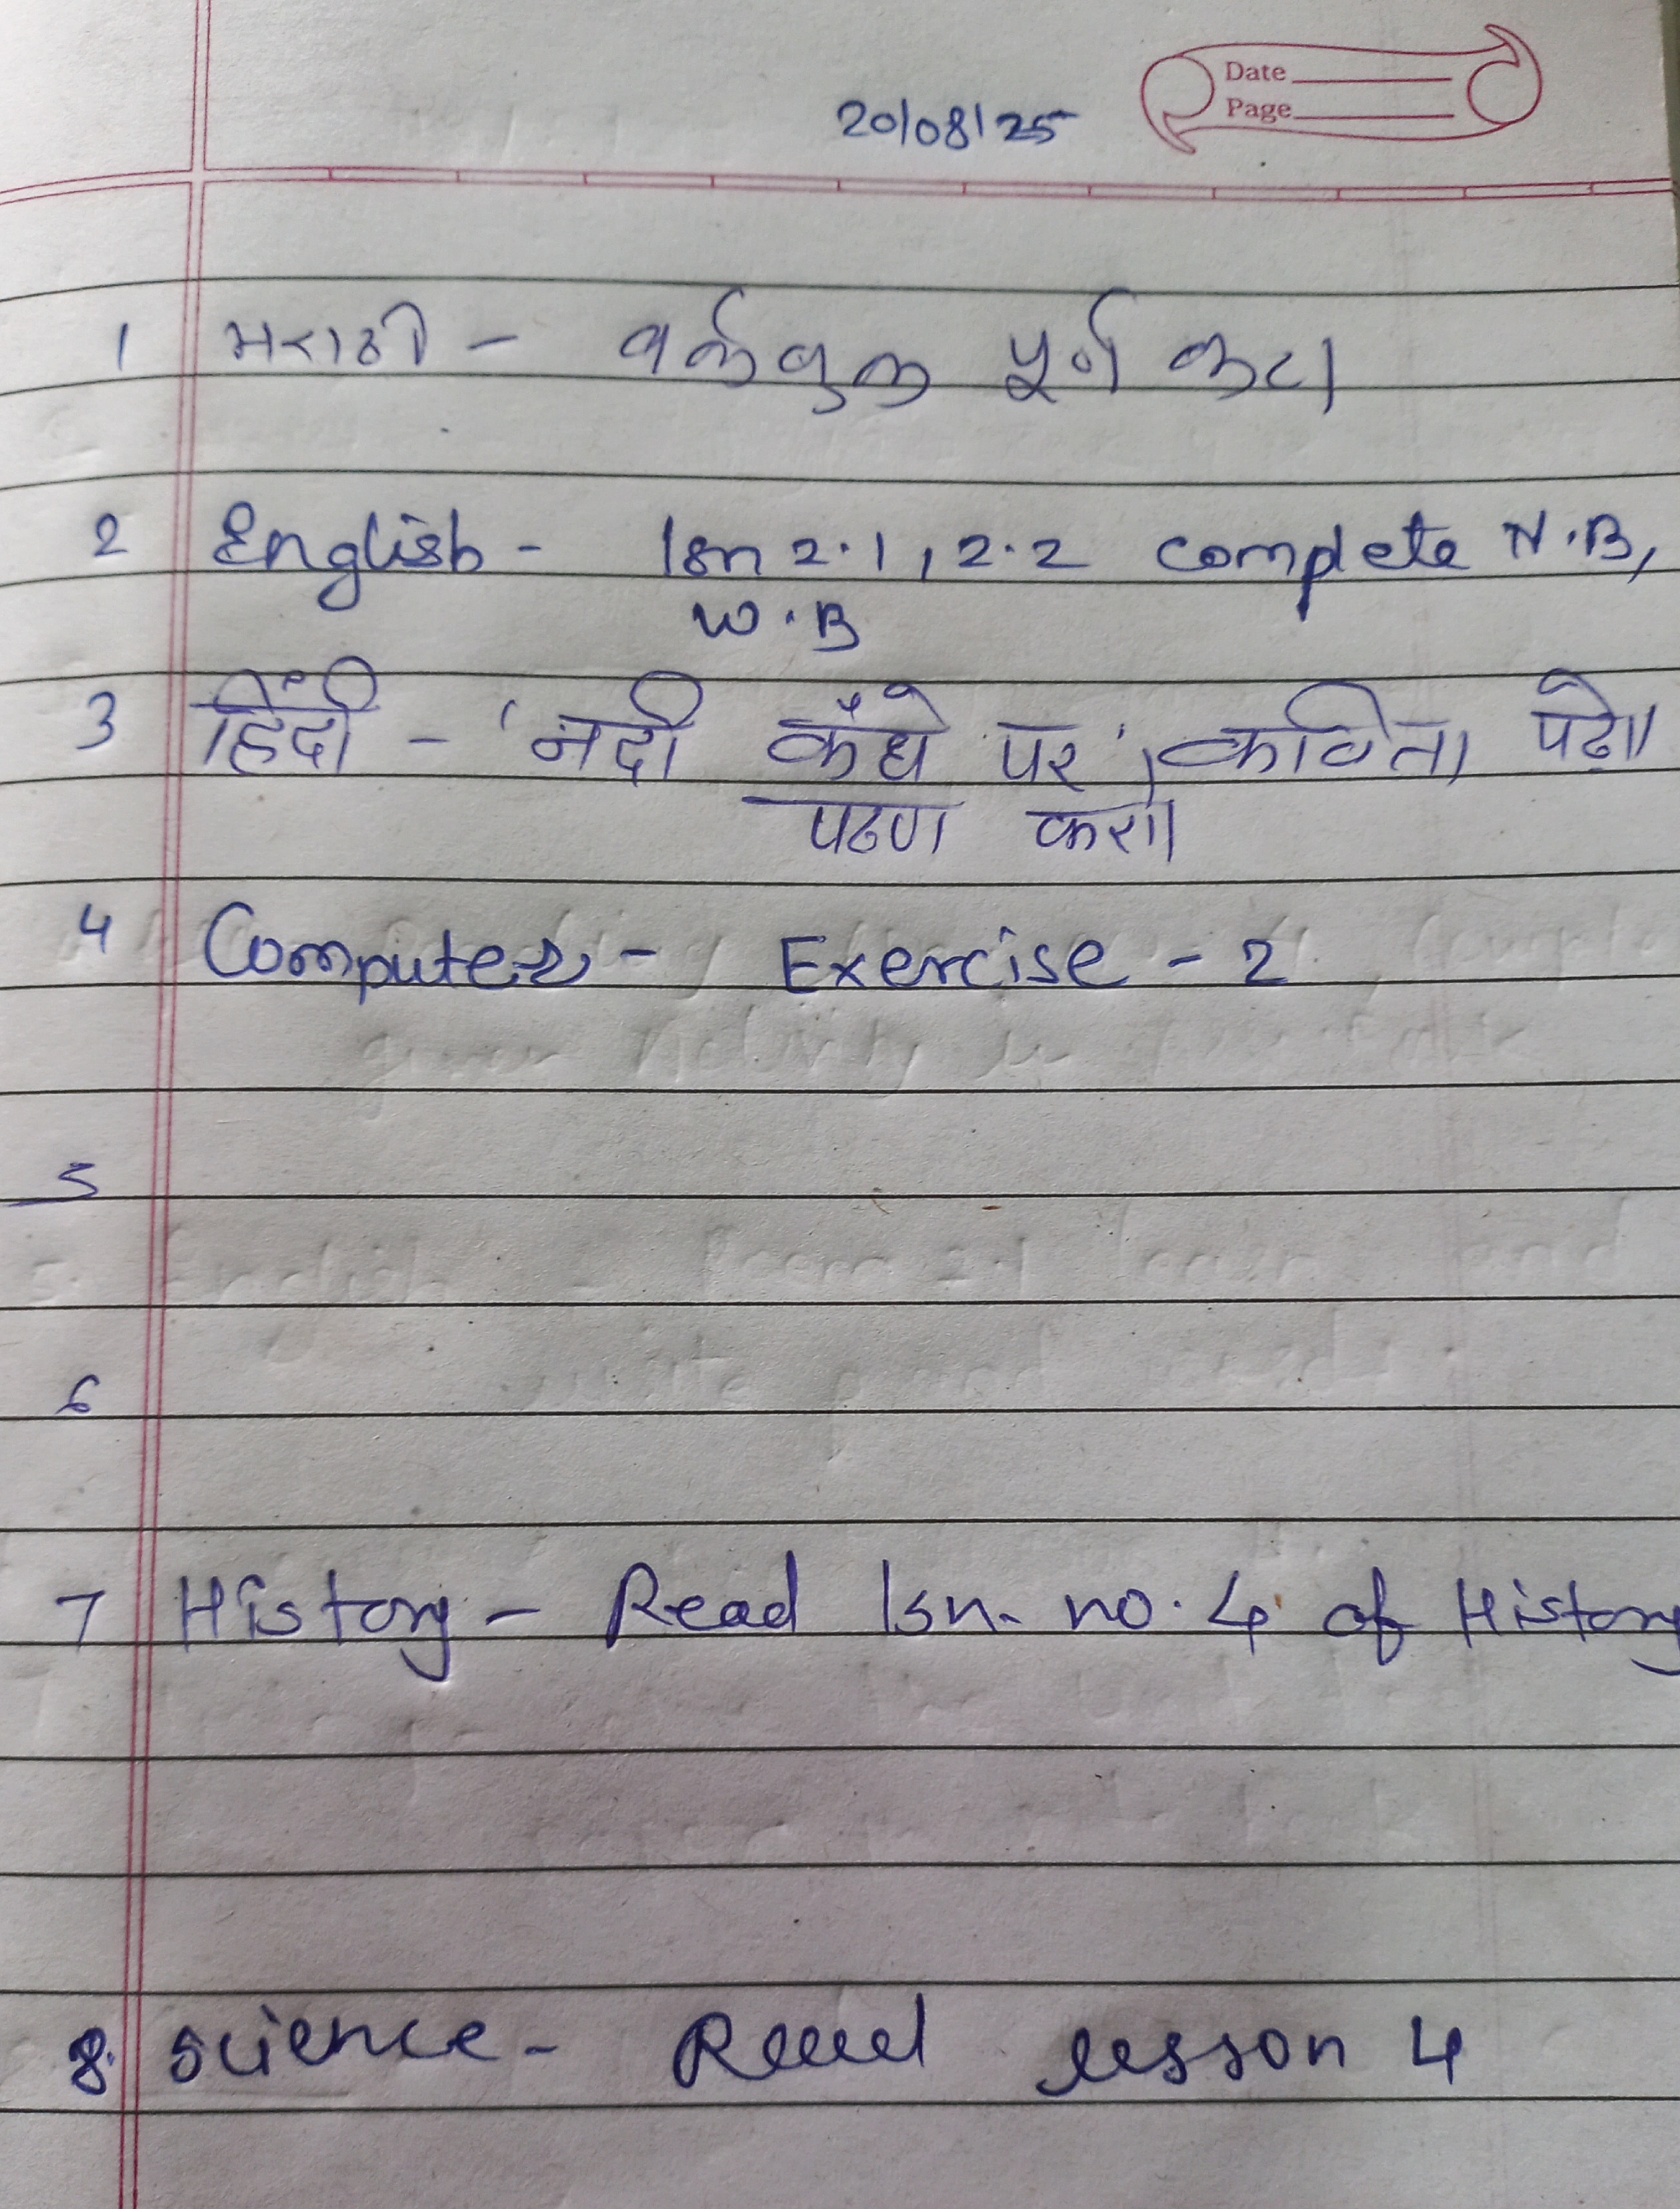 Date
20/08/25
Page
1 मराठी - वर्कबुक पूर्ण करा
2 English - lsn 2.1, 2.2 complete N.B,
W.B
3 हिंदी - 'नदी कँधे पर' कविता पढ़ो।
पठण करो।
4 Computer - Exercise - 2
5
6
7 History - Read lsn. no. 4 of History
8. Science - Read lesson 4